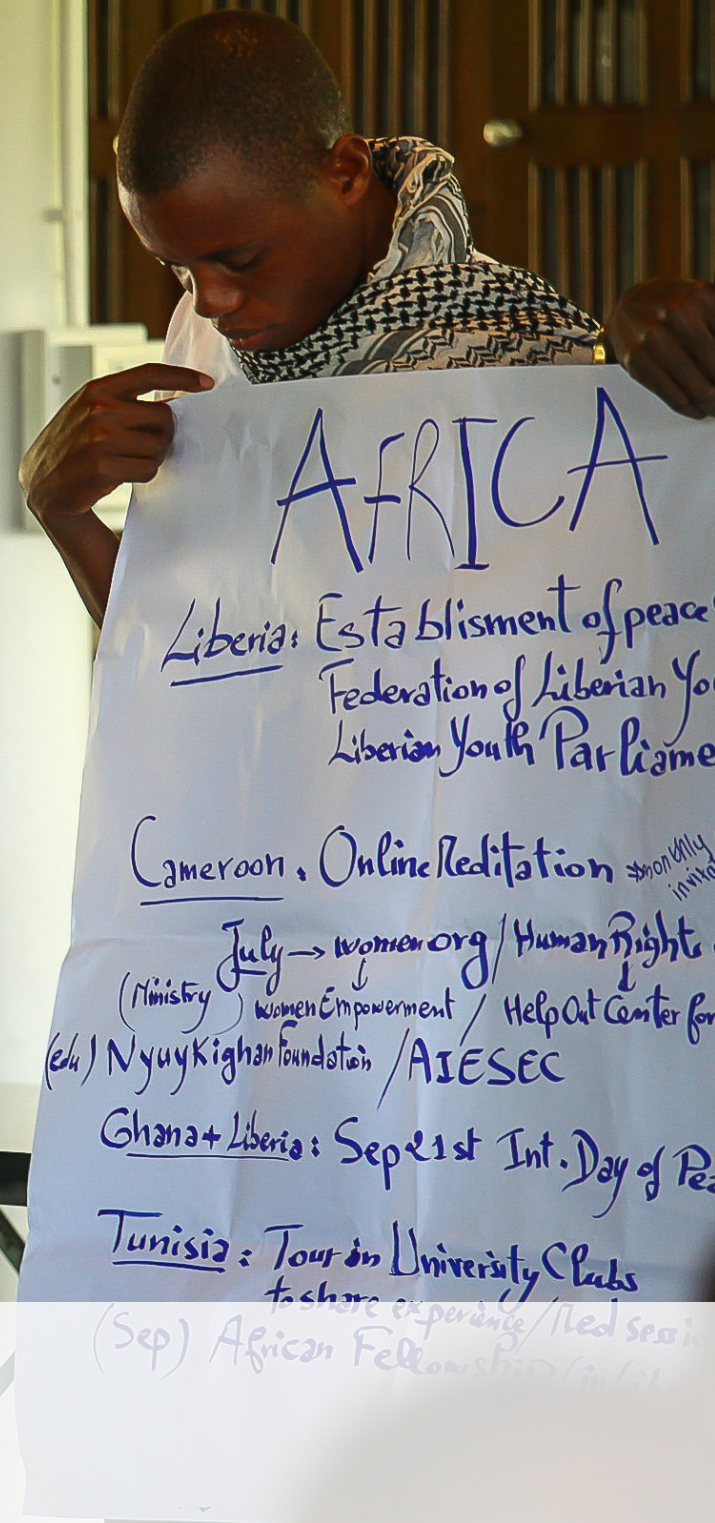 AFRICA
Liberia: Establisment of peace
Federation of Liberian Yo
Liberian Youth Parliame
Cameroon. Online Meditation monthly
invita
July → women org / Human Right
(Ministry) women Empowerment / Help Out Center for
(edu) Nyuy Kighan Foundation / AIESEC
Ghana + Liberia: Sep 21st Int. Day of Pea
Tunisia: Tour in University Clubs
to share experience / Med sessi
(Sep) African Fellowship (in Lib